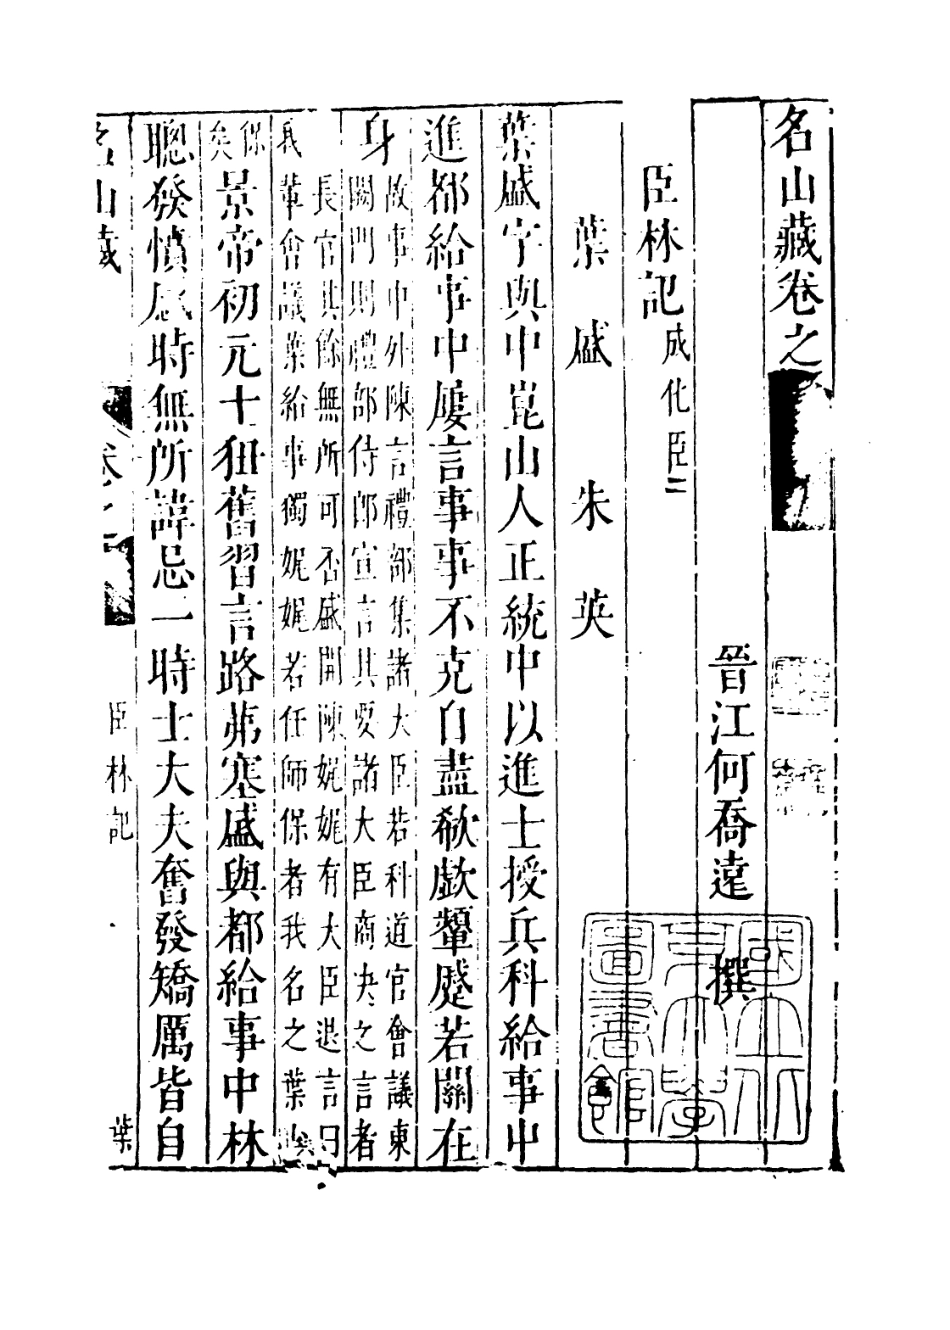 名山藏卷之
晉江何喬遠 撰
臣林記 成化臣二
葉盛 朱英
葉盛字與中崑山人正統中以進士授兵科給事中
進都給事中屢言事事不克自盡欷歔顰蹙若關在
身
故事中外陳言禮部集諸大臣若科道官會議東
闕門則禮部侍郎宣言其要諸大臣商决之言者
長官其餘無所可否盛開陳娓娓有大臣退言曰
我軰會議葉給事獨娓娓若任師保者我名之葉
保
矣
景帝初元士狃舊習言路茀塞盛與都給事中林
聰發憤感時無所諱忌一時士大夫奮發矯厲皆自
名山藏
卷之
臣林記
葉
國立北
京大學
圖書館